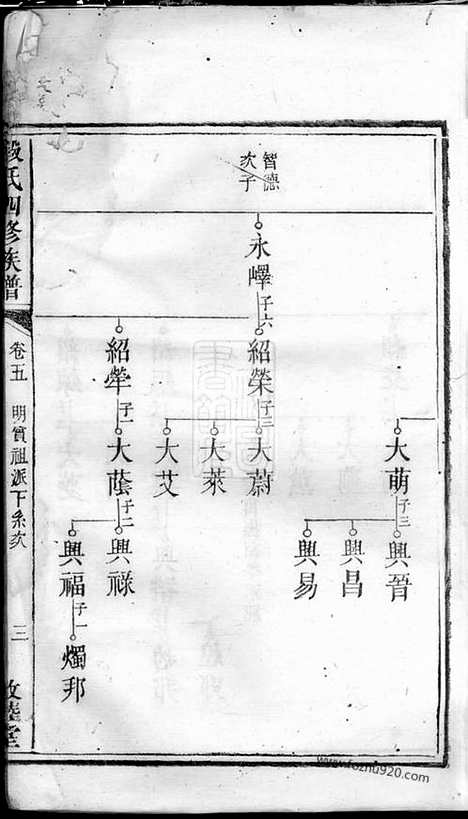 智德
次子
永嶧子六
紹榮子三
紹犖子一
大萌子三
大蔚
大萊
大艾
大蔭子二
興晉
興昌
興易
興祿
興福子一
燭邦
段氏四修族譜
卷五
明賓祖派下系次
三
敦睦堂
www.fozhu920.com